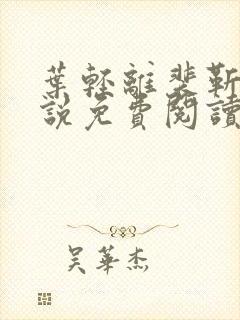 葉輕離裴靳
說免費閱讀
吳華杰